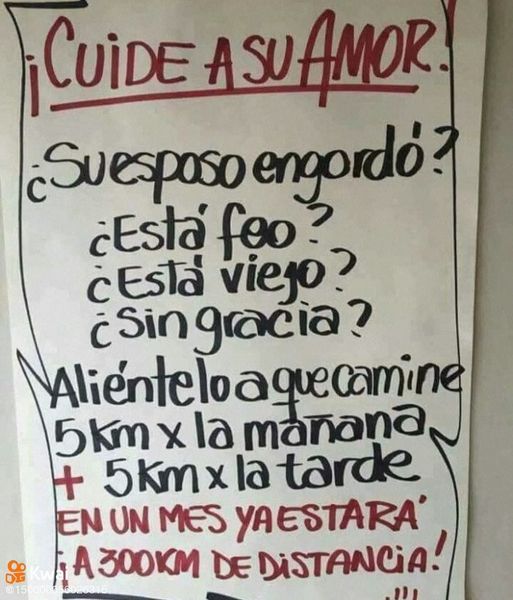 ¡CUIDE A SU AMOR!
¿Su esposo engordó?
¿Está feo?
¿Está viejo?
¿Sin gracia?
Aliéntelo a que camine
5Km x la mañana
+ 5Km x la tarde
EN UN MES YA ESTARÁ
¡A 300KM DE DISTANCIA!
...!!!
Kwai